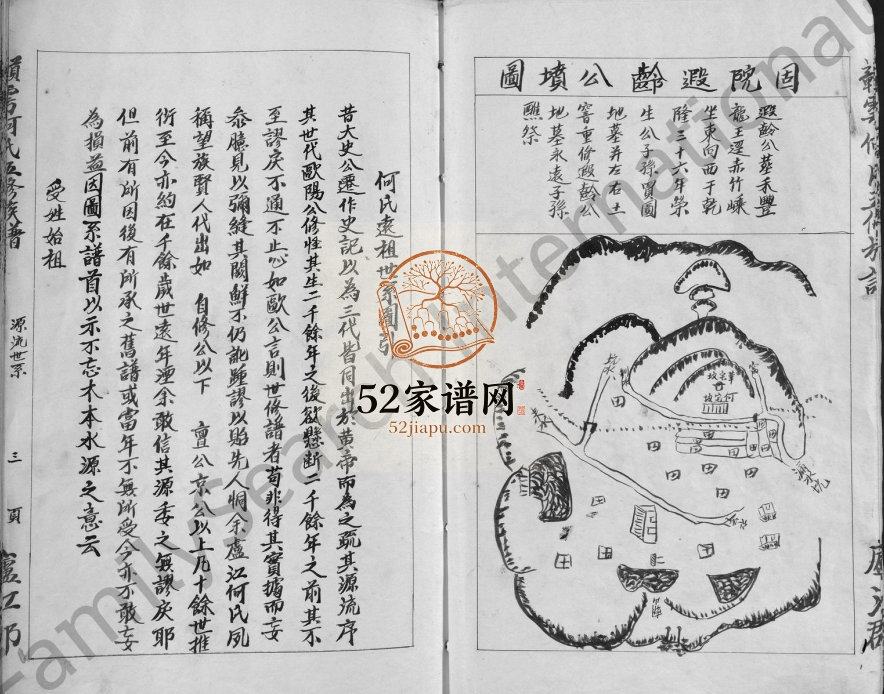 固院遐齡公墳圖
遐齡公墓未豐
龍王逕赤竹嵊
坐東向西于乾
隆三十六年榮
生公子孫買圓
地墓并左右土
窨重修遐齡公
地墓永遠子孫
醮祭
田
田
田
田
田
田
田
廬江郡
何氏遠祖世系圖引
昔大史公遷作史記以為三代皆同出於黄帝而為之疏其源流序
其世代歐陽公修性其生二千餘年之後欲懸斷二千餘年之前其不
至謬戾不通不止心如歐公言則世修譜者苟非得其實據而妄
叅臆見以彌縫其闕鮮不仍訛踵謬以貽先人恫余廬江何氏夙
稱望族賢人代出如 自修公以下 亶公京公以上凡十餘世推
衍至今亦約在千餘歲世遠年湮余敢信其源委之無謬戾耶
但前有所因後有所承之舊譜或當年不無所受今亦不敢妄
為損益因圖系譜首以示不忘木本水源之意云
受姓始祖
何氏五修族普
源流世系
三頁
廬江郡
52家谱网
52jiapu.com
FamilySearch International